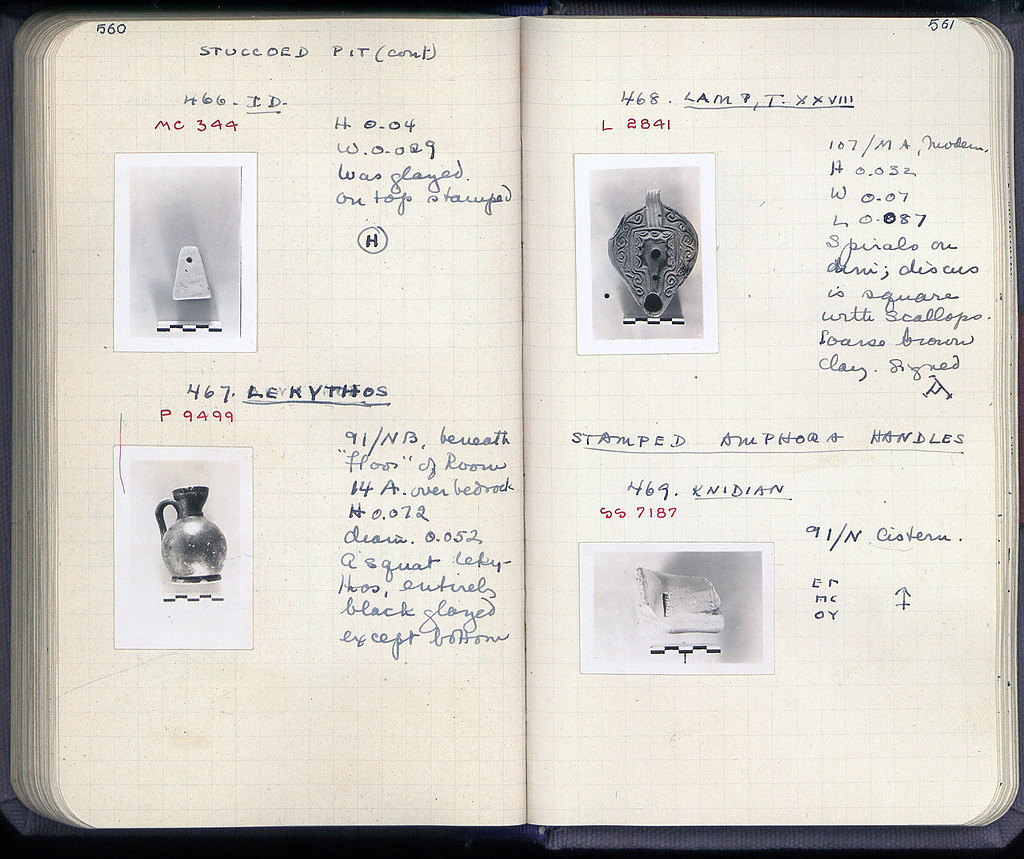 560
STUCCOED PIT (cont)
466. ID.
MC 344
H 0.04
W. 0.029
Was glazed.
on top stamped
H
467. LEKYTHOS
P 9499
91/NB, beneath
"floor" of Room
14 A. over bedrock
H 0.072
diam. 0.052
A squat leky-
thos, entirely
black glazed
except bottom
561
468. LAMP, T. XXVIII
L 2841
107/MA, Modern.
H 0.032
W 0.07
L 0.087
Spirals on
rim; discus
is square
with scallops.
Coarse brown
clay. Signed
A
STAMPED AMPHORA HANDLES
469. KNIDIAN
SS 7187
91/N Cistern.
ΕΠ
ΜC
ΟΥ